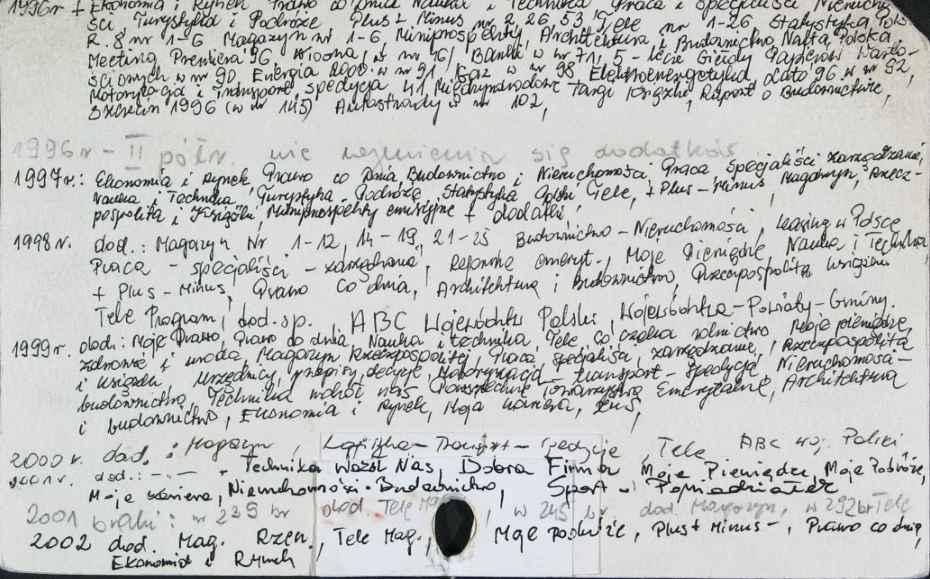 1996r + Ekonomia i Rynek Prawo co Dnia Nauka i Technika Praca i Specjaliści Nieruchomo-
ści Turystyka i Podróże Plus i Minus nr 2, 26, 53, Tele nr 1-26, Statystyka Polski
R. 8 nr 1-6 Magazyn nr 1-6 Miniprospekty, Architektura i Budownictwo Nafta Polska
Meeting Premiera 96, Wiosna, w nr 76, Banki w nr 71, 5-lecie Giełdy Papierów Warto-
ściowych w nr 90, Energia 2000 w nr 91, Gaz w nr 98 Elektroenergetyka, Lato 96 w nr 92,
Motoryzacja i Transport, Spedycja, 41 Międzynarodowe Targi Książki, Raport o Budownictwie,
Szczecin 1996 (w nr 145) Autostrady w nr 102,
1996r - II półr. nie wymienia się dodatków
1997r.: Ekonomia i rynek, Prawo co dnia, Budownictwo i Nieruchomości, Praca Specjaliści zarządzanie,
Nauka i Technika, Turystyka - Podróże, Statystyka Polski, Tele, + Plus - Minus, Magazyn, Rzecz-
pospolita i Książki, Miniprospekty emisyjne + dodatki,
1998r. dod.: Magazyn Nr 1-12, 14-19, 21-25 Budownictwo - Nieruchomości, Leasing w Polsce
Praca - specjaliści - zarządzanie, Reforma emeryt., Moje Pieniądze Nauka i Technika
+ Plus - Minus, Prawo Co dnia, Architektura i budownictwo, Rzeczpospolita książki
Tele Program, dod. sp. ABC Województw Polski, Województwa - Powiaty - Gminy.
1999r. dod.: Moje Prawo, Prawo co dnia, Nauka i technika, Tele, co czeka rolnictwo, Moje pieniądze,
zdrowie i uroda, Magazyn Rzeczpospolitej, Praca, specjaliści, zarządzanie, Rzeczpospolita
i książki, Urzędnicy, przepisy, decyzje, Motoryzacja - transport - spedycja Nieruchomości -
budownictwo, Technika wokół nas, Powszechne Towarzystwa Emerytalne, Architektura
i budownictwo, Ekonomia i rynek, Moja kariera, ZUS,
2000r. dod.: Magazyn, Logistyka - Transport - Spedycje, Tele ABC woj. Polski,
dod.: - Technika Wokół Nas, Dobra Firma Moje Pieniądze, Moje Podróże,
Moja kariera, Nieruchomości - Budownictwo, Sport - Poniedziałek
2001 braki: nr 239 br dod. Tele w 245 br dod. Magazyn, w 292 br Tele
2002 dod. Mag. Rzecz., Tele Mag., Moje podróże, Plus + Minus -, Prawo co dnia,
Ekonomia i Rynek